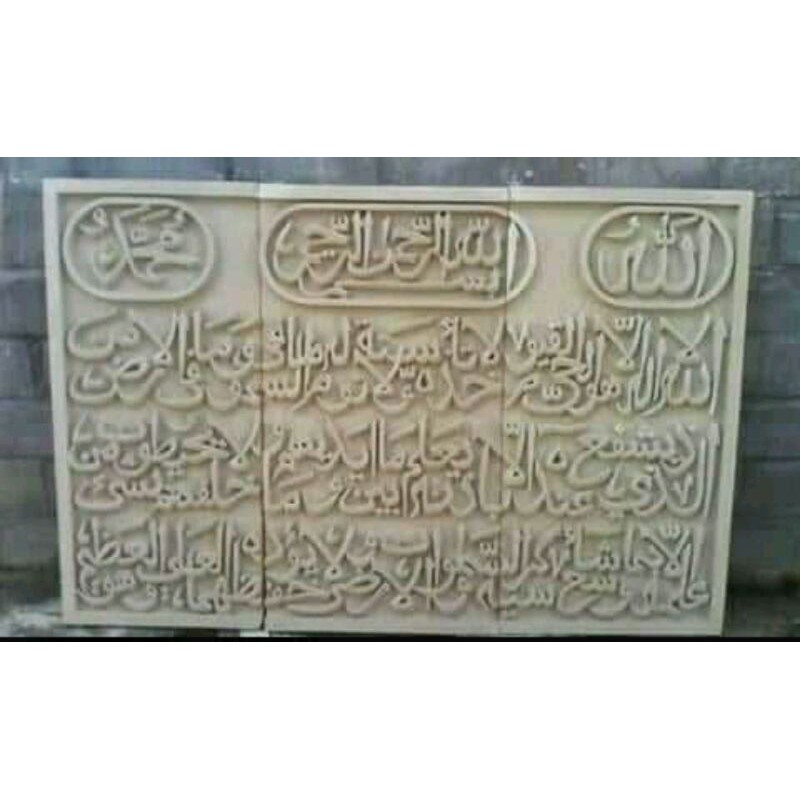 الله
بسم الله الرحمن الرحيم
محمد
الله لا إله إلا هو الحي القيوم لا تأخذه سنة ولا نوم له ما في السموات وما في الأرض
الذي يشفع عنده إلا يعلم ما بين أيديهم وما خلفهم ولا يحيطون بشيء من
علمه إلا بما شاء وسع كرسيه السموات والأرض ولا يؤده حفظهما وهو العلي العظيم